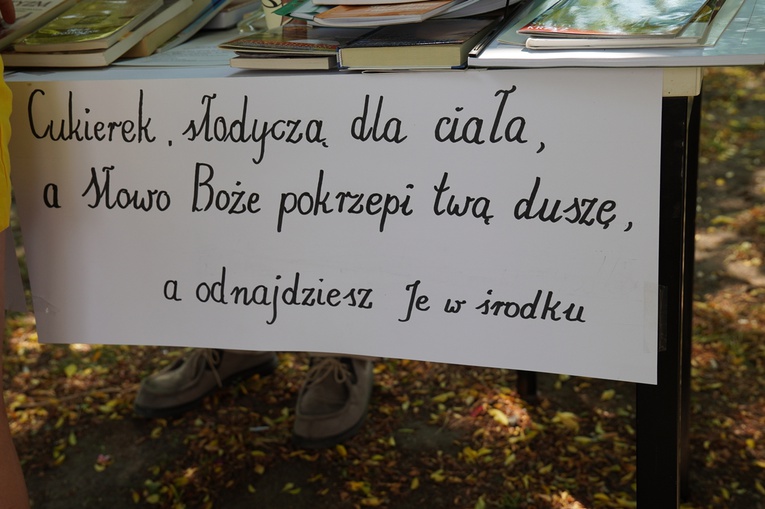 Cukierek, słodyczą dla ciała,
a Słowo Boże pokrzepi twą duszę,
a odnajdziesz Je w środku